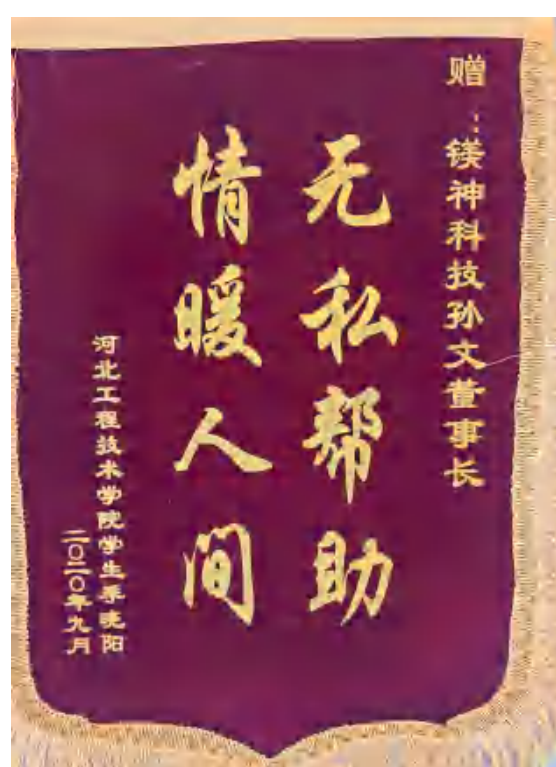 赠：镁神科技孙文董事长
无私帮助
情暖人间
河北工程技术学院学生季晓阳
二〇二〇年九月